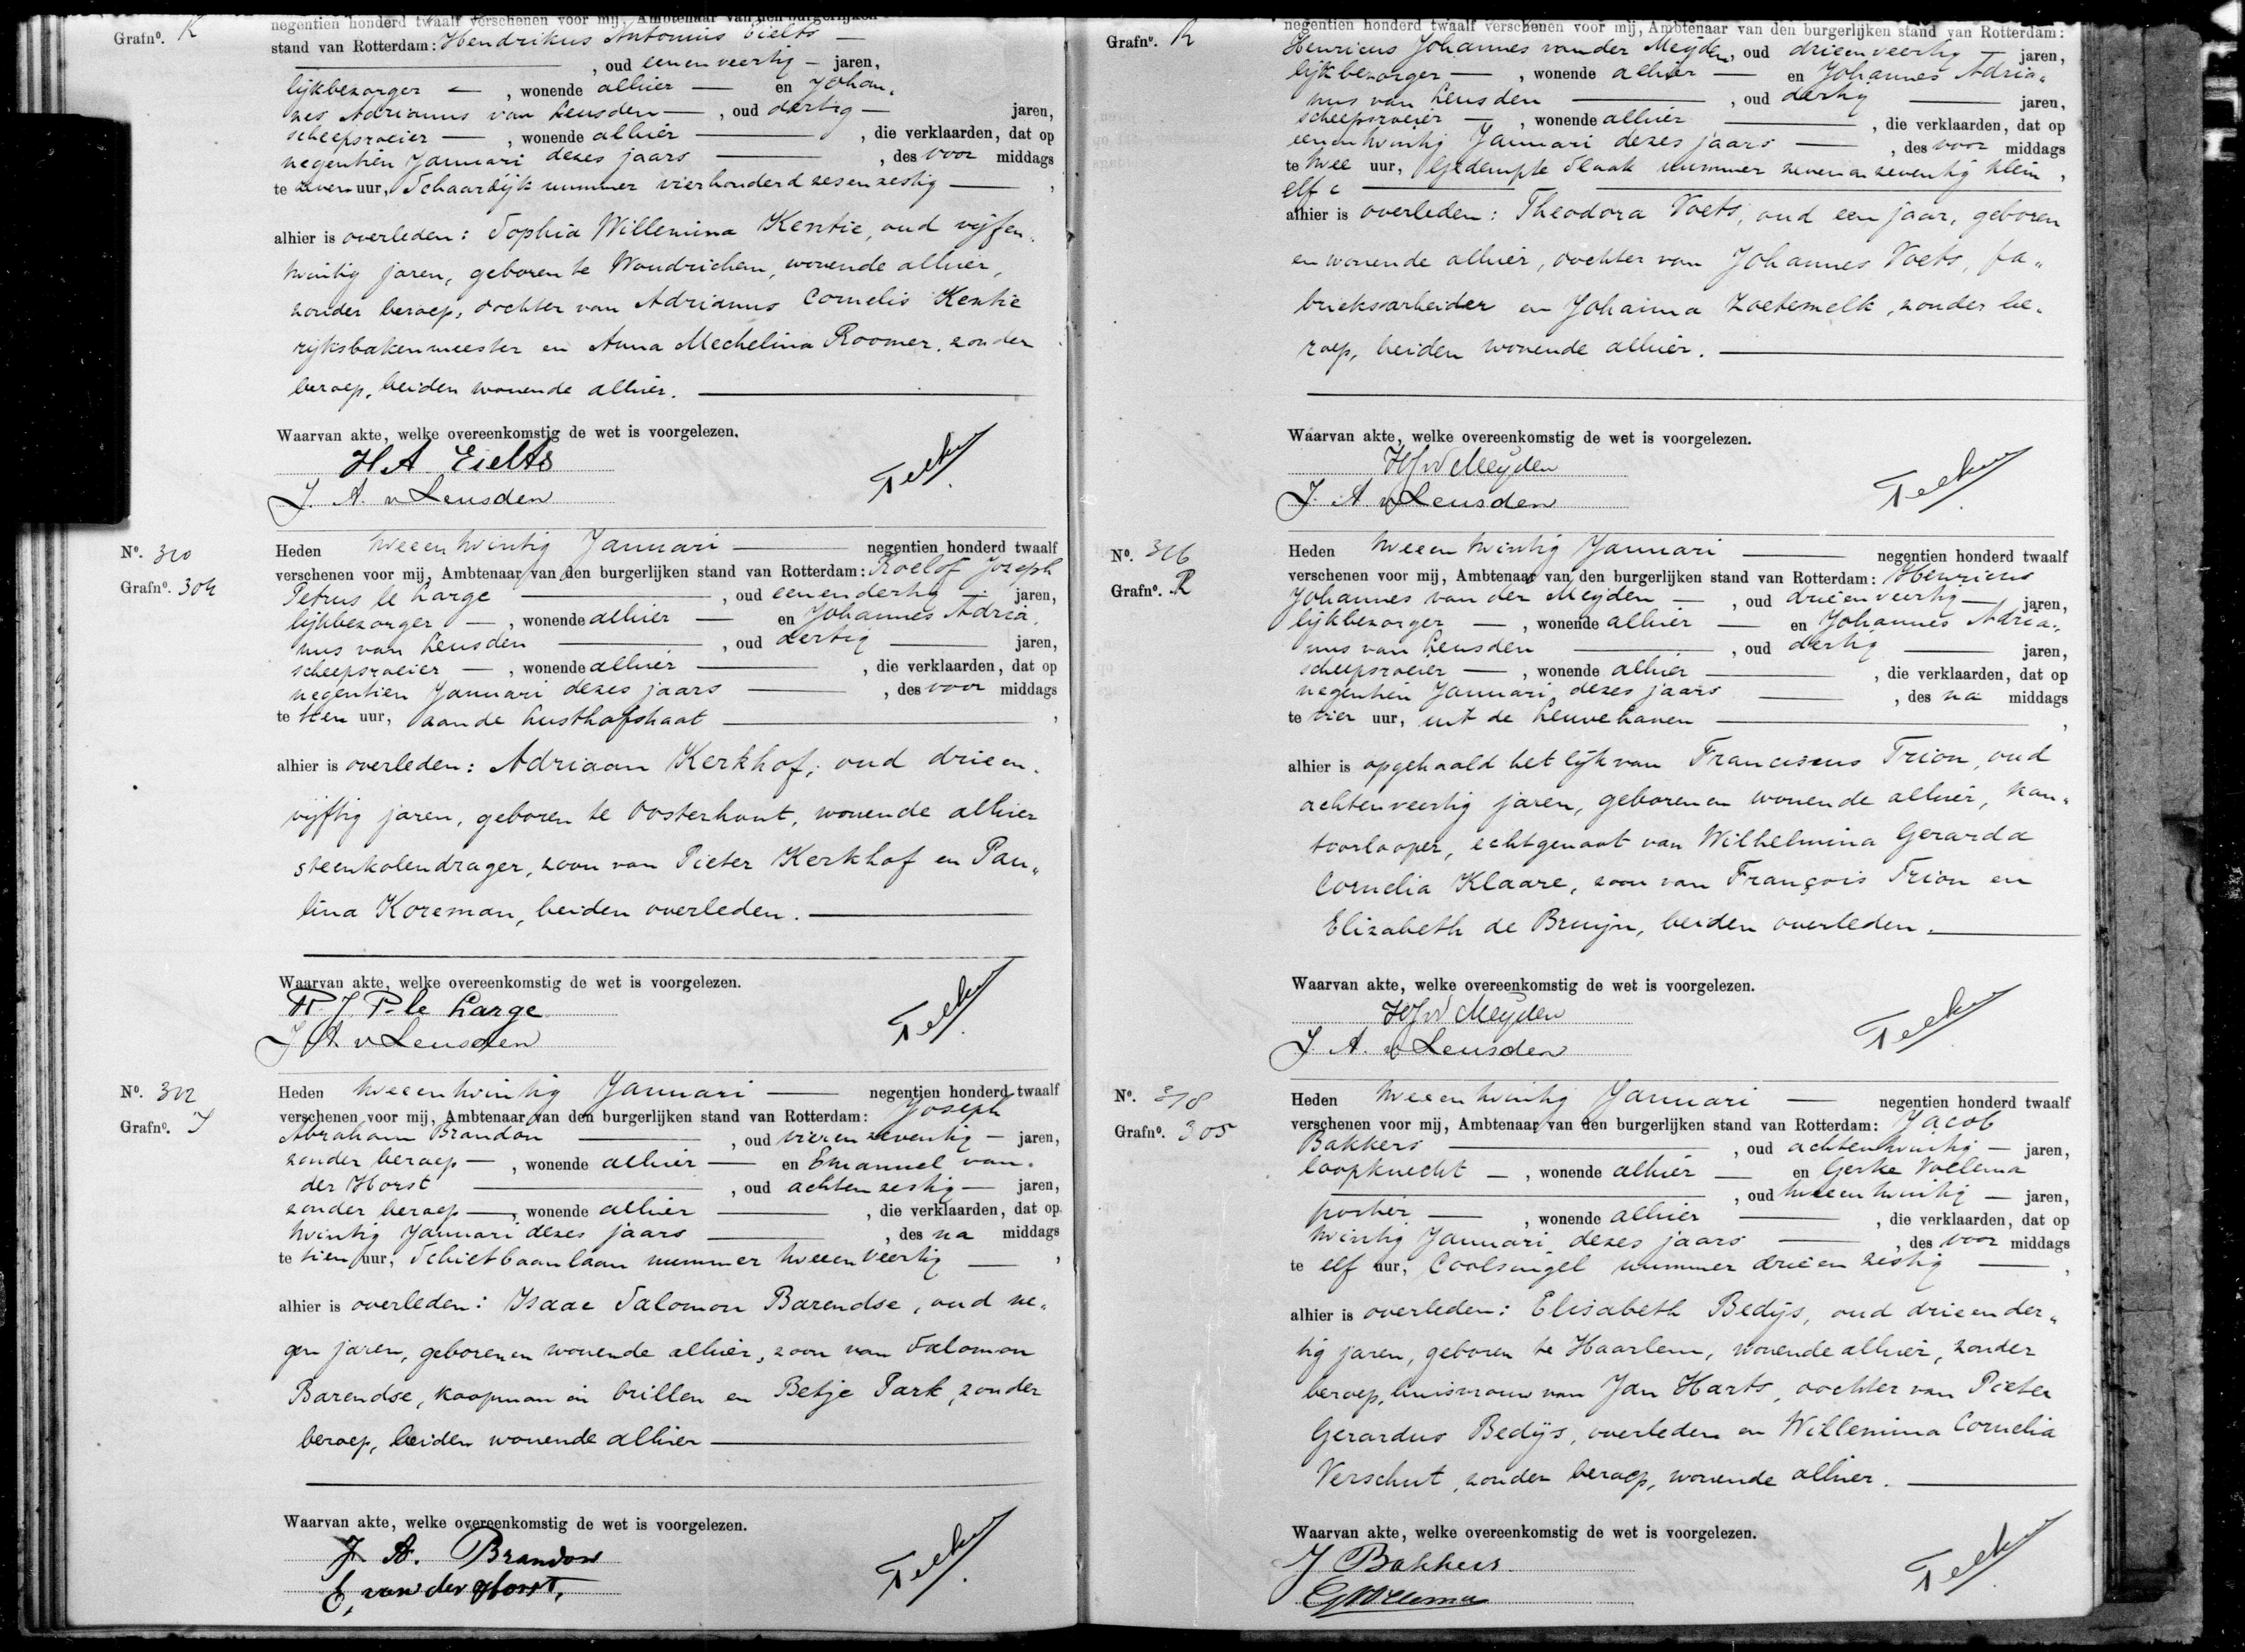 negentien honderd twaalf verschenen voor mij, Ambtenaar van den burgerlijken
Grafno. R
stand van Rotterdam: Hendrikus Antonius Eielts
, oud eenenveertig jaren,
lijkbezorger , wonende alhier en Johan„
nes Adrianus van Leusden , oud dertig jaren,
scheepsroeier , wonende alhier , die verklaarden, dat op
negentien Januari dezes jaars , des voor middags
te zeven uur, Schaardijk nummer vierhonderd zesenzestig ,
alhier is overleden: Sophia Willemina Kentie, oud vijfen„
twintig jaren, geboren te Woudrichem, wonende alhier,
zonder beroep, dochter van Adrianus Cornelis Kentie
rijksbakenmeester en Anna Mechelina Roomer, zonder
beroep, beiden wonende alhier.
Waarvan akte, welke overeenkomstig de wet is voorgelezen.
H A Eielts
J. A. v Leusden
No. 310
Grafno. 304
Heden tweeentwintig Januari negentien honderd twaalf
verschenen voor mij, Ambtenaar van den burgerlijken stand van Rotterdam: Roelof Jozeph
Petrus le Large , oud eenendertig jaren,
lijkbezorger , wonende alhier en Johannes Adria„
nus van Leusden , oud dertig jaren,
scheepsroeier , wonende alhier , die verklaarden, dat op
negentien Januari dezes jaars , des voor middags
te tien uur, aan de Lusthofstraat ,
alhier is overleden: Adriaan Kerkhof, oud drieen„
vijftig jaren, geboren te Oosterhout, wonende alhier
steenkolendrager, zoon van Pieter Kerkhof en Pau„
lina Koreman, beiden overleden.
Waarvan akte, welke overeenkomstig de wet is voorgelezen.
R. J. P. le Large
J A v Leusden
No. 312
Grafno. J
Heden tweeentwintig Januari negentien honderd twaalf
verschenen voor mij, Ambtenaar van den burgerlijken stand van Rotterdam: Joseph
Abraham Brandon , oud vierenzeventig jaren,
zonder beroep , wonende alhier en Emanuel van
der Horst , oud achtenzestig jaren,
zonder beroep , wonende alhier , die verklaarden, dat op
twintig Januari dezes jaars , des na middags
te tien uur, Schietbaanlaan nummer tweeenveertig ,
alhier is overleden: Isaac Salomon Barendse, oud ne„
gen jaren, geboren en wonende alhier, zoon van Salomon
Barendse, koopman in brillen en Betje Park, zonder
beroep, beiden wonende alhier
Waarvan akte, welke overeenkomstig de wet is voorgelezen.
J. A. Brandon
E. van der Horst,
negentien honderd twaalf verschenen voor mij, Ambtenaar van den burgerlijken stand van Rotterdam:
Grafno. R
Henricus Johannes van der Meijden, oud drieenveertig jaren,
lijkbezorger , wonende alhier en Johannes Adria„
nus van Leusden , oud dertig jaren,
scheepsroeier , wonende alhier , die verklaarden, dat op
eenentwintig Januari dezes jaars , des voor middags
te twee uur, Gedempte Slaak nummer zevenenzeventig klein ,
elf c
alhier is overleden: Theodora Voets, oud een jaar, geboren
en wonende alhier, dochter van Johannes Voets, fa„
brieksarbeider en Johanna Zoetemelk, zonder be„
roep, beiden wonende alhier.
Waarvan akte, welke overeenkomstig de wet is voorgelezen.
HJ vd Meyden
J. A v Leusden
No. 316
Grafno. R
Heden tweeentwintig Januari negentien honderd twaalf
verschenen voor mij, Ambtenaar van den burgerlijken stand van Rotterdam: Henricus
Johannes van der Meijden , oud drieenveertig jaren,
lijkbezorger , wonende alhier en Johannes Adria„
nus van Leusden , oud dertig jaren,
scheepsroeier , wonende alhier , die verklaarden, dat op
negentien Januari dezes jaars , des na middags
te vier uur, uit de Leuvehaven ,
alhier is opgehaald het lijk van Franciscus Trion, oud
achtenveertig jaren, geboren en wonende alhier, kan„
toorlooper, echtgenoot van Wilhelmina Gerarda
Cornelia Klaare, zoon van François Trion en
Elizabeth de Bruijn, beiden overleden.
Waarvan akte, welke overeenkomstig de wet is voorgelezen.
HJ vd Meyden
J. A. v Leusden
No. 318
Grafno. 305
Heden tweeentwintig Januari negentien honderd twaalf
verschenen voor mij, Ambtenaar van den burgerlijken stand van Rotterdam: Jacob
Bakkers , oud achtentwintig jaren,
loopknecht , wonende alhier en Gerke Wellema
, oud tweeentwintig jaren,
portier , wonende alhier , die verklaarden, dat op
twintig Januari dezes jaars , des voor middags
te elf uur, Coolsingel nummer drieenzestig ,
alhier is overleden: Elisabeth Bedijs, oud drieender„
tig jaren, geboren te Haarlem, wonende alhier, zonder
beroep, huisvrouw van Jan Harts, dochter van Pieter
Gerardus Bedijs, overleden en Willemina Cornelia
Verschut, zonder beroep, wonende alhier.
Waarvan akte, welke overeenkomstig de wet is voorgelezen.
J Bakkers